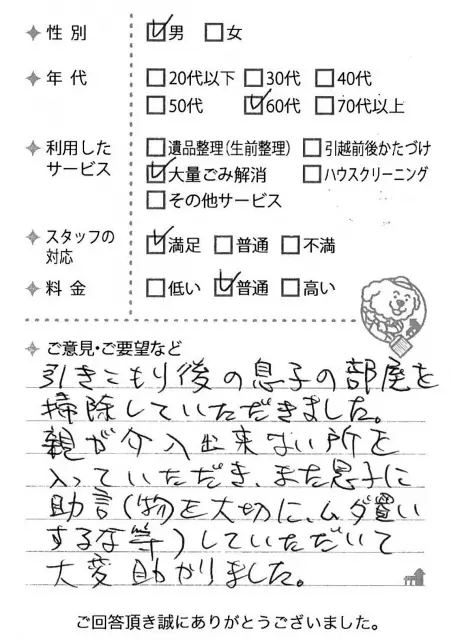 性別 ☑男 □女
年代 □20代以下 □30代 □40代
□50代 ☑60代 □70代以上
利用した サービス □遺品整理(生前整理) □引越前後かたづけ
☑大量ごみ解消 □ハウスクリーニング
□その他サービス
スタッフの 対応 ☑満足 □普通 □不満
料金 □低い ☑普通 □高い
ご意見・ご要望など
引きこもり後の息子の部屋を
掃除していただきました。
親が介入出来ない所を
入っていただき、また息子に
助言(物を大切に、ムダ置い
するな等)していただいて
大変助かりました。
ご回答頂き誠にありがとうございました。